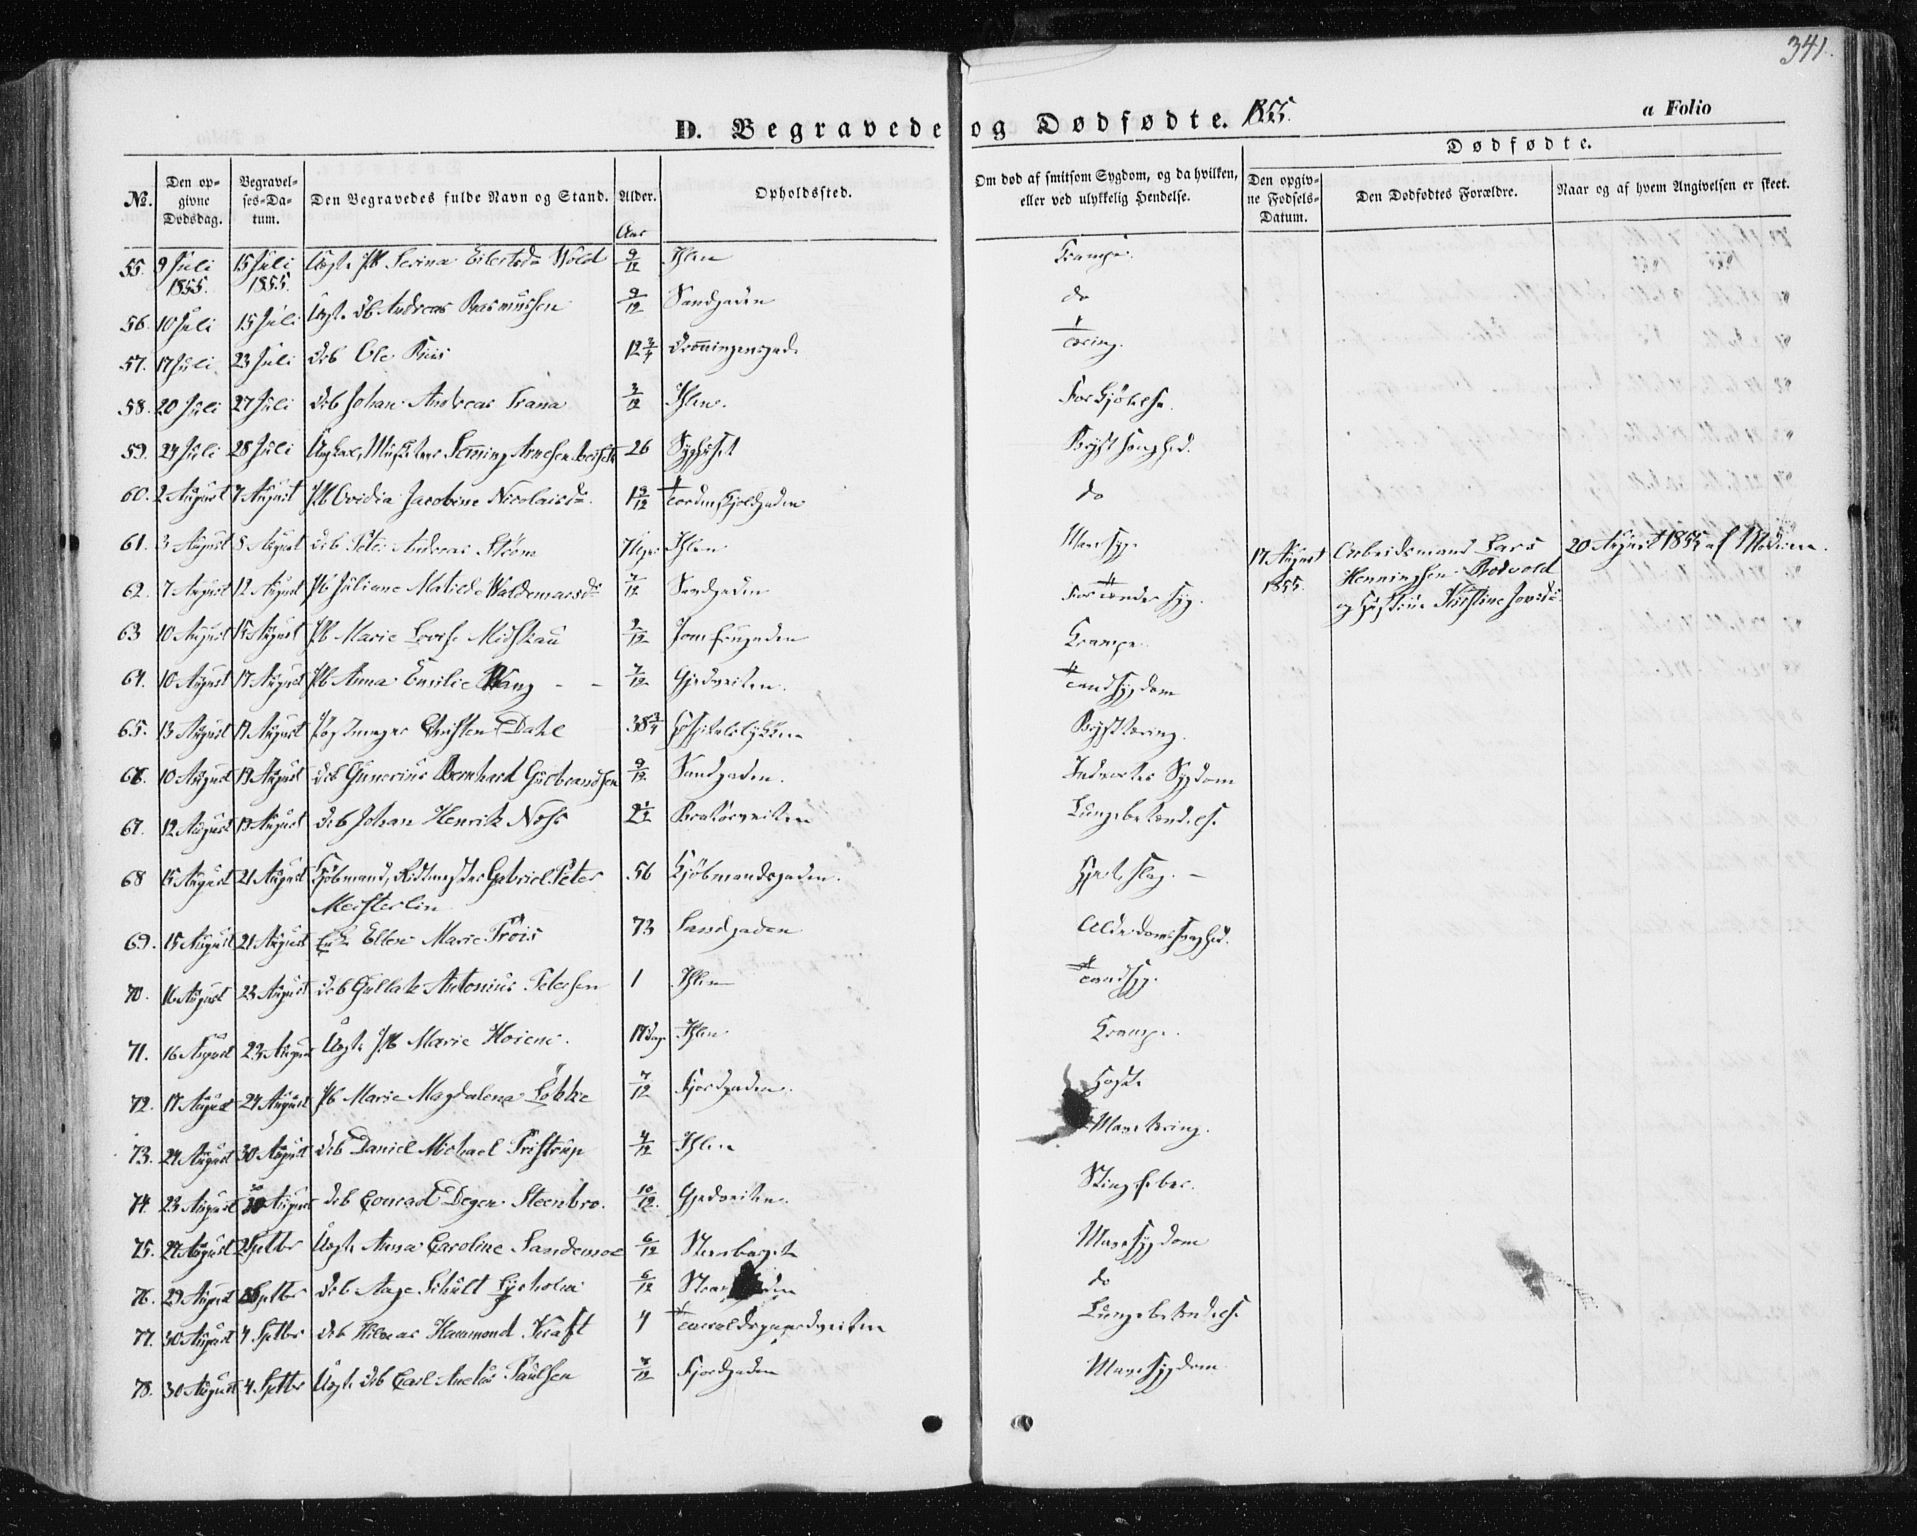 341.
D. Begravede og Dødfødte. 1855.
a Folio
No.
Den opgivne Dødsdag.
Begravelses-Datum.
Den Begravedes fulde Navn og Stand.
Alder.
Aar
Opholdssted.
Om død af smitsom Sygdom, og da hvilken, eller ved ulykkelig Hendelse.
Dødfødte.
Den opgivne Fødsels-Datum.
Den Dødfødtes Forældre.
Naar og af hvem Angivelsen er skeet.
55. 9 Juli 1855. 15 Juli 1855. Uægte Pb Serina Wold 9/12 Ihlen Krampe.
56. 10 Juli 15 Juli Uægte Db Andreas Rasmussen 9/12 Sandgaden do
57. 17 Juli. 23 Juli Db Ole Riis 12 3/4 Dronningensgade Tæring.
58. 20 Juli 27 Juli Db Johan Andreas Trana 3/12 Ihlen.
59. 24 Juli 28 Juli Ungkarl, Musketer Henning Arnesen 26 Syghuset Brystsvaghed.
60. 2 August 7 August Pb Ovidia Jacobine Nicolaisdr. 1 9/12 Tordenskjoldsgaden do
61. 3 August 8 August Db Peter Andreas Strøm 7 Uger Ihlen Mavesyge
62. 7 August 12 August Pb Juliane Matilde Waldemarsdr 7/12 Sandgaden
63 10 August 15 August Pb Marie Lovise Midskau 2/12 Jomfrugaden Krampe
64. 10 August 17 August Pb Anna Emilie Wang - - 7/12 Gjedveiten. Tandsygdom
65. 13 August 17 August Christen Dahl 38 3/4 Hospitalsløkken Brysttæring.
66. 10 August 19 August Db Gunerius Bernhard Gulbrandsen 9/12 Sandgaden. Indvortes Sygdom
67. 12 August 19 August Db Johan Henrik Næss 2 1/2 Bratørveiten Lungebetændelse
68 15 August 21 August Kjøbmand, Ridtmester Gabriel Peter Meisterlin 56 Kjøbmandsgaden. Hjerteslag. -
69. 15 August 21 August Enke Ellen Marie Prøis 73 Sandgaden Alderdomssvaghed.
70. 16 August 23 August Db Gullak Antonius Petersen 1 Ihlen Tandsyge.
71. 16 August 23 August Uægte Pb Marie Hoiem. 17 Dage Ihlen Krampe.
72. 17 August 24 August Pb Marie Magdalena Løkke 7/12 Fjordgaden. Hoste
73. 24 August 30 August Db Daniel Michael Tristrup 4/12 Ihlen Mavetæring.
74. 23 August 30 August Db Conrad Degen Steenbro. 10/12 Gjedveiten. Stingfeber.
75. 27 August 2 Septbr Uægte Anna Caroline Sandemoe 6/12 Steenberget Mavesygdom
76. 29 August Septbr Db Aage Schult Lysholm 6/12 do
77. 30 August 4 Septbr Db Hammond Kraft 4 Taraldsgaardveiten Lungebetændelse
78. 30 August 4 Septbr Uægte Db Carl Anetus Paulsen 7/12 Fjordgaden Mavesygdom
17 August 1855. Arbeidsmand Lars Henningsen Rodvold og Hustrue Kirstine 20 August 1855 af Moderen.